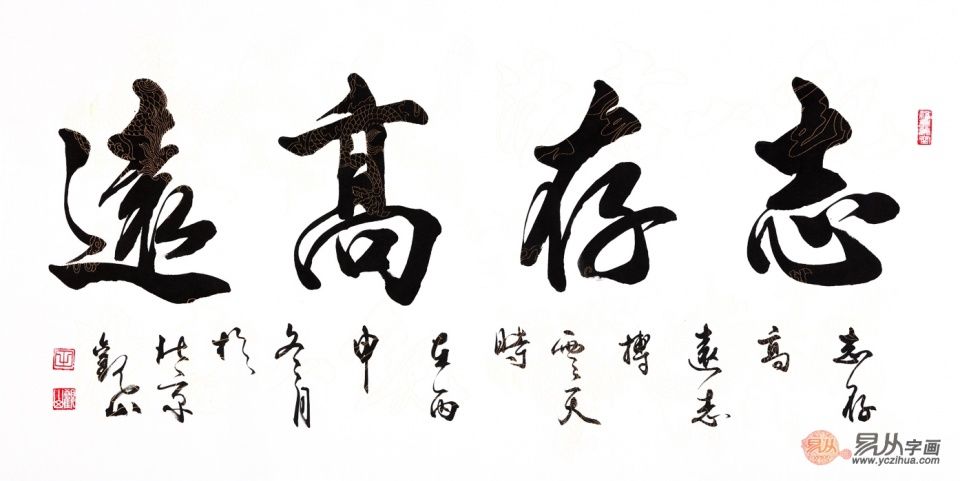 志存高遠
志存
高
遠志
搏
雲天
時
在丙
申
冬月
於
北京
觀山
易从
易从字画
www.yczihua.com